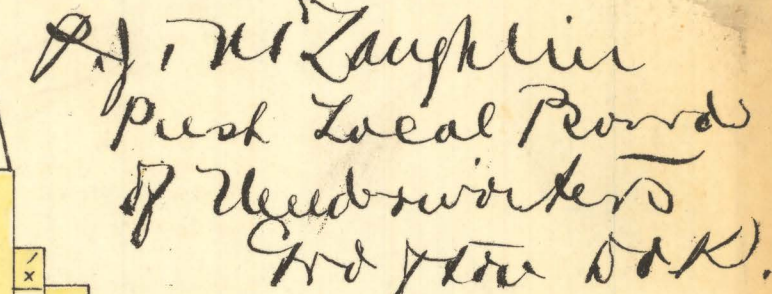 P.J. McLaughlin
Prest Local Board
of Underwriters
Grafton Dak.
x